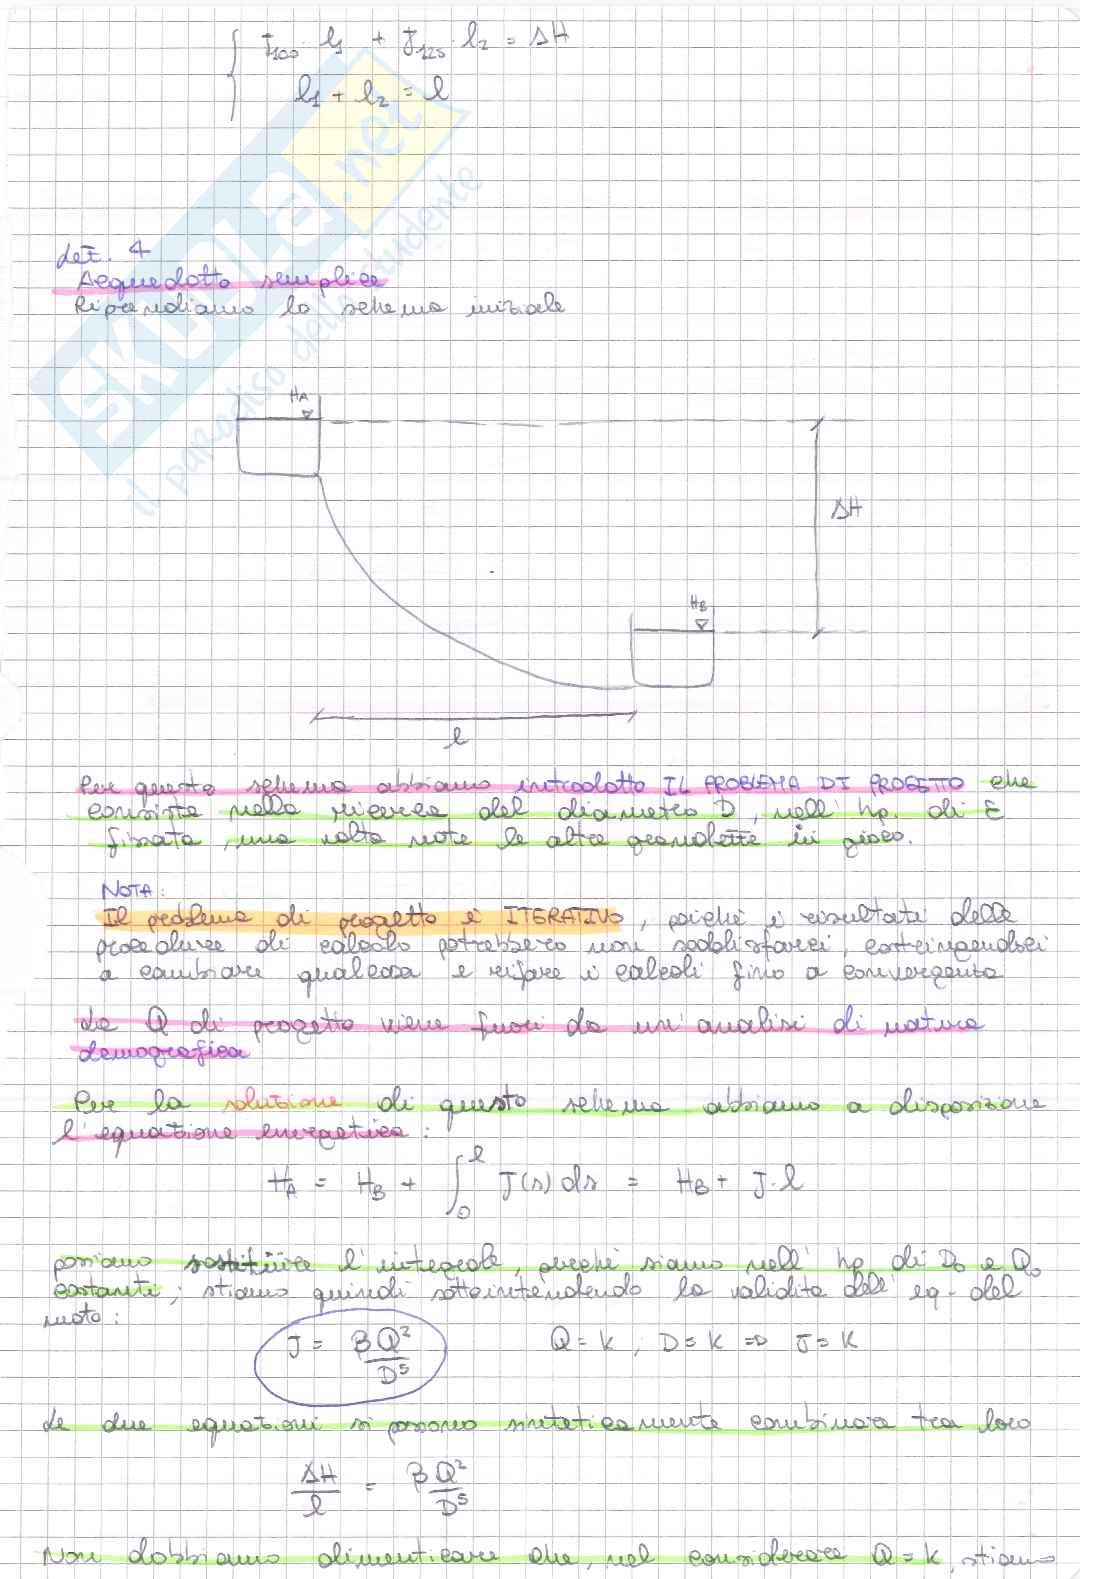 J100 · l1 + J125 · l2 = ΔH
l1 + l2 = l
SKUOLA.net
il paradiso dello studente
Lez. 4
Acquedotto semplice
Riprendiamo lo schema iniziale
HA
ΔH
HB
l
Per questo schema abbiamo introdotto IL PROBLEMA DI PROGETTO che
consiste nella ricerca del diametro D, nell' hp. di ε
fissata, una volta note le altre grandezze in gioco.
NOTA:
Il problema di progetto è ITERATIVO, poiché i risultati delle
procedure di calcolo potrebbero non soddisfarci, costringendoci
a cambiare qualcosa e rifare i calcoli fino a convergenza
La Q di progetto viene fuori da un'analisi di natura
demografica
Per la soluzione di questo schema abbiamo a disposizione
l'equazione energetica:
HA = HB + ∫₀ˡ J(s) ds = HB + J·l
possiamo sostituire l'integrale, perché siamo nell' hp di D0 e Q0
costanti; stiamo quindi sottointendendo la validità dell' eq. del
moto:
J = βQ²/D⁵ Q = K ; D = K ⇒ J = K
Le due equazioni si possono sinteticamente combinare tra loro
ΔH/l = βQ²/D⁵
Non dobbiamo dimenticare che, nel considerare Q = K, stiamo